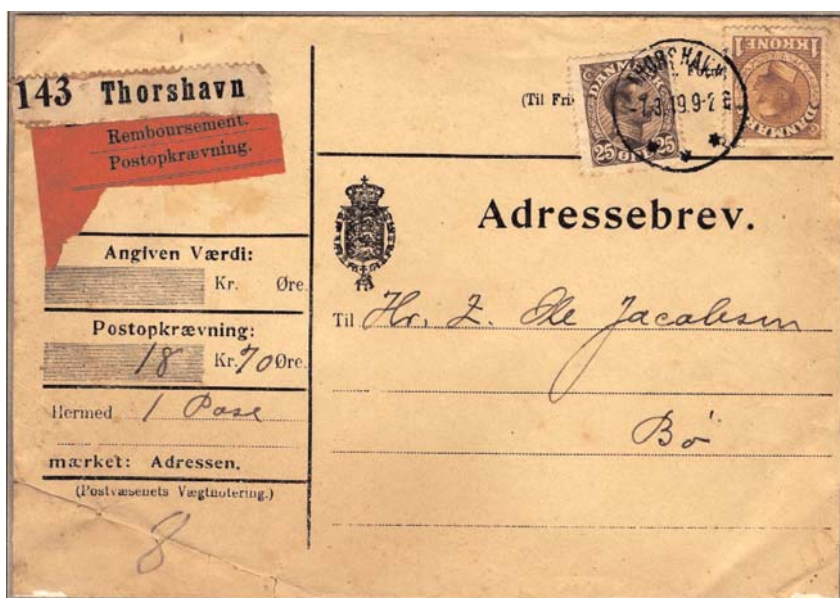 143 Thorshavn
Remboursement.
Postopkrævning.
Angiven Værdi:
Kr. Øre.
Postopkrævning:
18 Kr. 70 Øre.
Hermed 1 Pose
mærket: Adressen.
(Postvæsenets Vægtnotering.)
8
(Til Fri
DANMARK
25 25
THORSHAVN
-7.3.19.9-
1 KRONE 1
DANMARK
Adressebrev.
Til Hr. Z. Ole Jacobsen
Bø